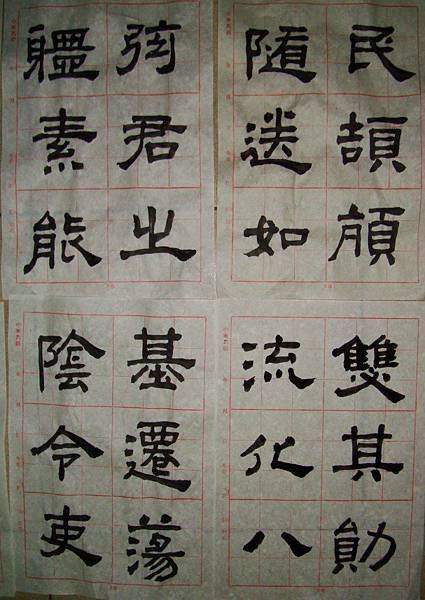 民頡頏
隨送如
弦君之
體素能
雙其勛
流化八
基遷蕩
陰令吏